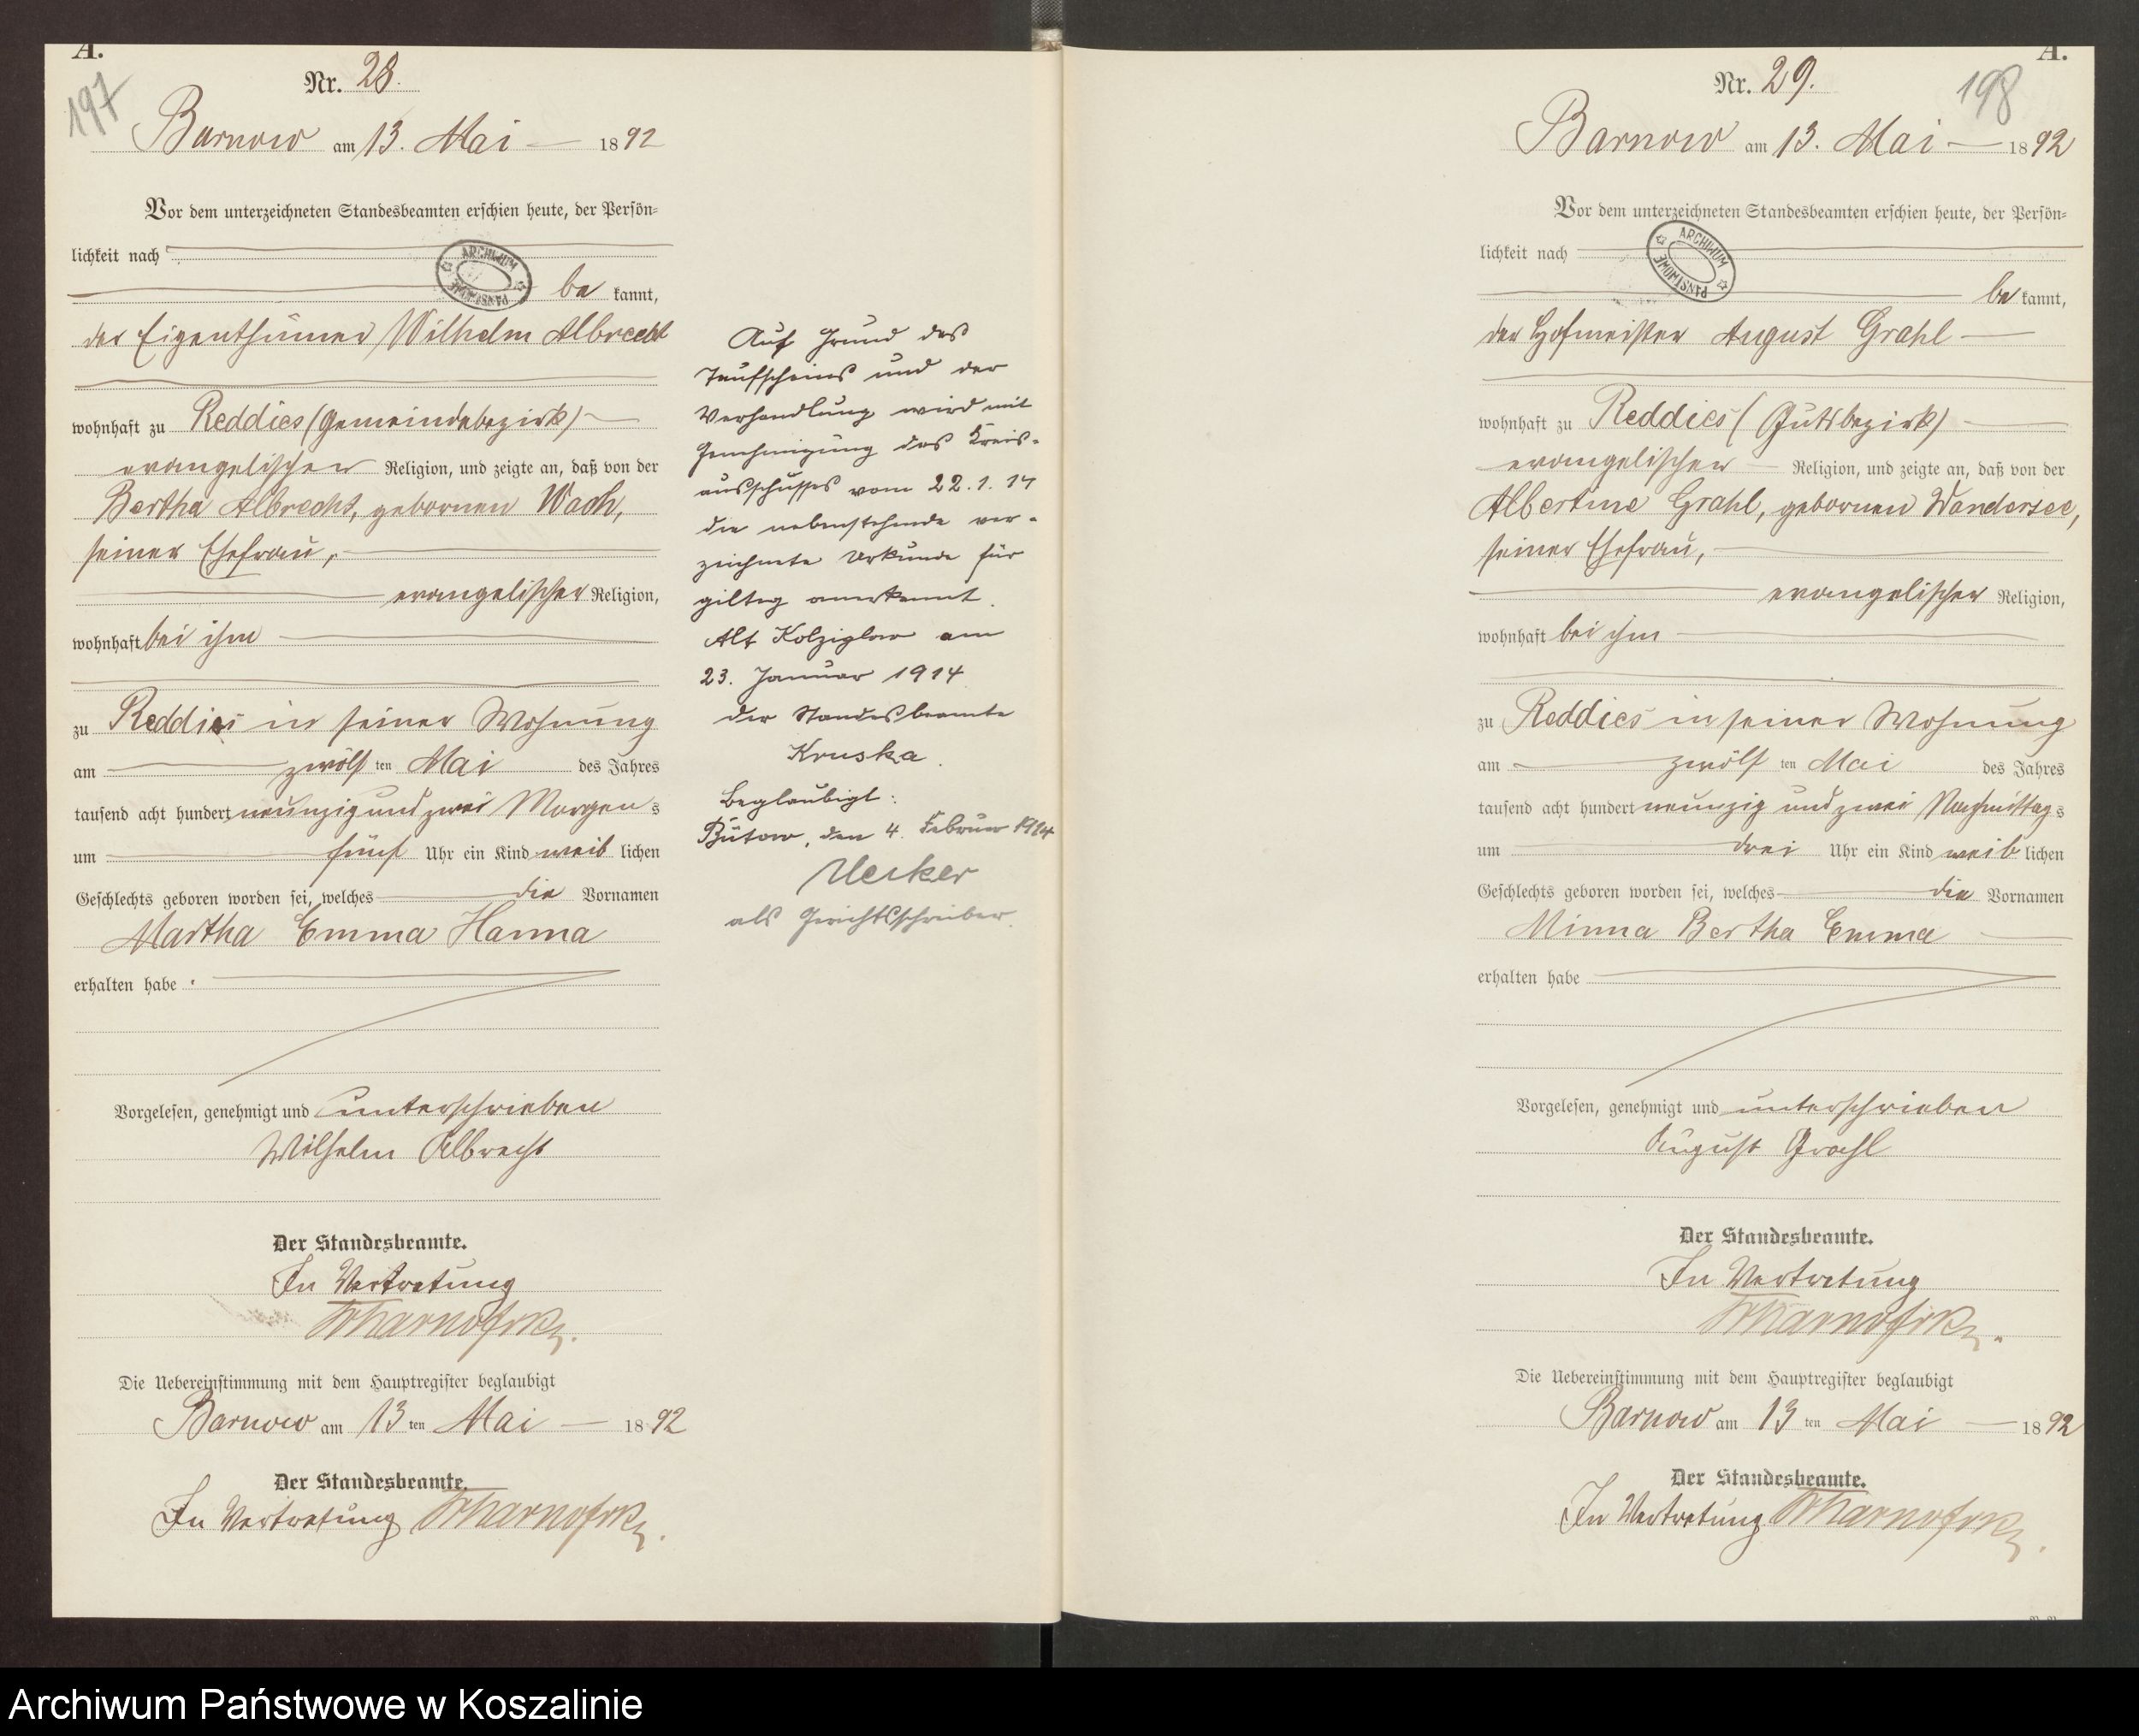 A.
197
Nr. 28.
Barnow am 13. Mai 1892
Vor dem unterzeichneten Standesbeamten erschien heute, der Persön-
lichkeit nach
ARCHIWUM PAŃSTWOWE
be kannt,
der Eigenthümer Wilhelm Albrecht
wohnhaft zu Reddies (Gemeindebezirk)
evangelischer Religion, und zeigte an, daß von der
Bertha Albrecht, gebornen Wach,
seiner Ehefrau,
evangelischer Religion,
wohnhaft bei ihm
zu Reddies in seiner Wohnung
am zwölf ten Mai des Jahres
tausend acht hundert neunzig und zwei Morgens
um fünf Uhr ein Kind weib lichen
Geschlechts geboren worden sei, welches die Vornamen
Martha Emma Hanna
erhalten habe.
Vorgelesen, genehmigt und unterschrieben
Wilhelm Albrecht
Der Standesbeamte.
In Vertretung
Die Uebereinstimmung mit dem Hauptregister beglaubigt
Barnow am 13 ten Mai 1892
Der Standesbeamte.
In Vertretung
Auf Grund des
Taufscheins und der
Verhandlung wird mit
Genehmigung des Kreis-
ausschusses vom 22.1.14
die nebenstehende ver-
zeichnete Urkunde für
giltig anerkannt.
Alt Kolziglow am
23. Januar 1914
der Standesbeamte
Kruska.
Beglaubigt:
Bütow, den 4. Februar 1914
Uecker
als Gerichtsschreiber.
A.
198
Nr. 29.
Barnow am 13. Mai 1892
Vor dem unterzeichneten Standesbeamten erschien heute, der Persön-
lichkeit nach
ARCHIWUM PAŃSTWOWE
be kannt,
der Hofmeister August Grahl
wohnhaft zu Reddies (Gutsbezirk)
evangelischer Religion, und zeigte an, daß von der
Albertine Grahl, gebornen Wandersee,
seiner Ehefrau,
evangelischer Religion,
wohnhaft bei ihm
zu Reddies in seiner Wohnung
am zwölf ten Mai des Jahres
tausend acht hundert neunzig und zwei Nachmittags
um drei Uhr ein Kind weib lichen
Geschlechts geboren worden sei, welches die Vornamen
Minna Bertha Emma
erhalten habe
Vorgelesen, genehmigt und unterschrieben
August Grahl
Der Standesbeamte.
In Vertretung
Die Uebereinstimmung mit dem Hauptregister beglaubigt
Barnow am 13 ten Mai 1892
Der Standesbeamte.
In Vertretung
Archiwum Państwowe w Koszalinie